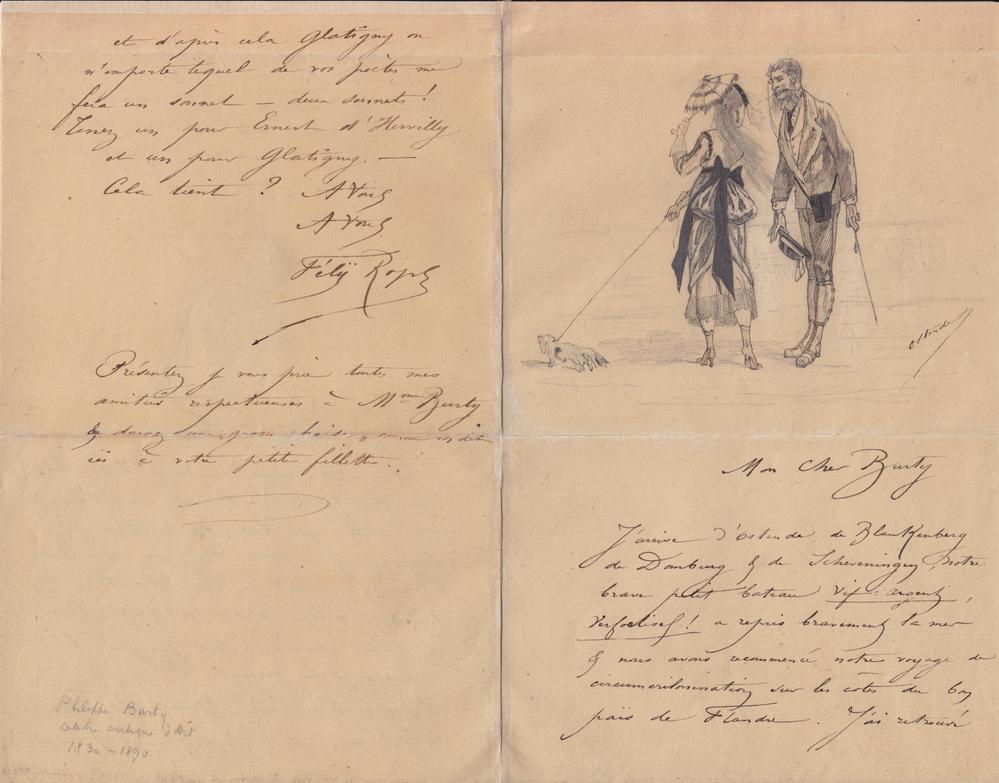 et d'après cela Glatigny ou
n'importe lequel de vos poètes me
fera un sonnet — deux sonnets !
Tenez un pour Ernest d'Hervilly
et un pour Glatigny —
Cela tient ? A Vous
A Vous
Félÿ Rops
Présentez je vous prie toutes mes
amitiés respectueuses à Mme Burty
& donnez un „gros baiser„ comme on dit
ici à votre petite fillette.
Philippe Burty
critique d'Art
1830 – 1890
Ostende
Mon Cher Burty
J'arrive d'Ostende, de Blankenberg
de Domburg & de Scheveningen, notre
brave petit bateau vif-argent,
! a repris bravement la mer
& nous avons recommencé notre voyage de
sur les côtes du bon
païs de Flandre. J'ai retrouvé